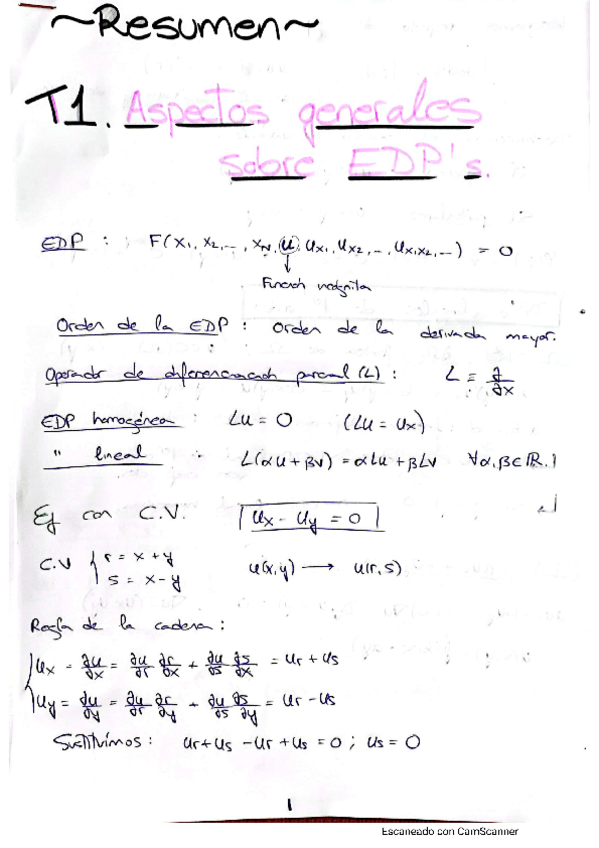 ~Resumen~
T1. Aspectos generales
sobre EDP's.
EDP : F(x₁, x₂, ..., x_N, u, u_x₁, u_x₂, ..., u_x₁x₂, ...) = 0
↓
Función incógnita
Orden de la EDP : Orden de la derivada mayor.
Operador de diferenciación parcial (L) : L ≡ ∂/∂x
EDP homogénea : Lu = 0 (Lu = u_x)
" lineal : L(αu + βv) = αLu + βLv ∀α, β ∈ ℝ.
Ej con C.V. u_x - u_y = 0
C.V { r = x + y
s = x - y u(x,y) → u(r,s)
Regla de la cadena :
{ u_x = ∂u/∂x = ∂u/∂r ∂r/∂x + ∂u/∂s ∂s/∂x = u_r + u_s
u_y = ∂u/∂y = ∂u/∂r ∂r/∂y + ∂u/∂s ∂s/∂y = u_r - u_s
Sustituimos : u_r + u_s - u_r + u_s = 0 ; u_s = 0
1
Escaneado con CamScanner